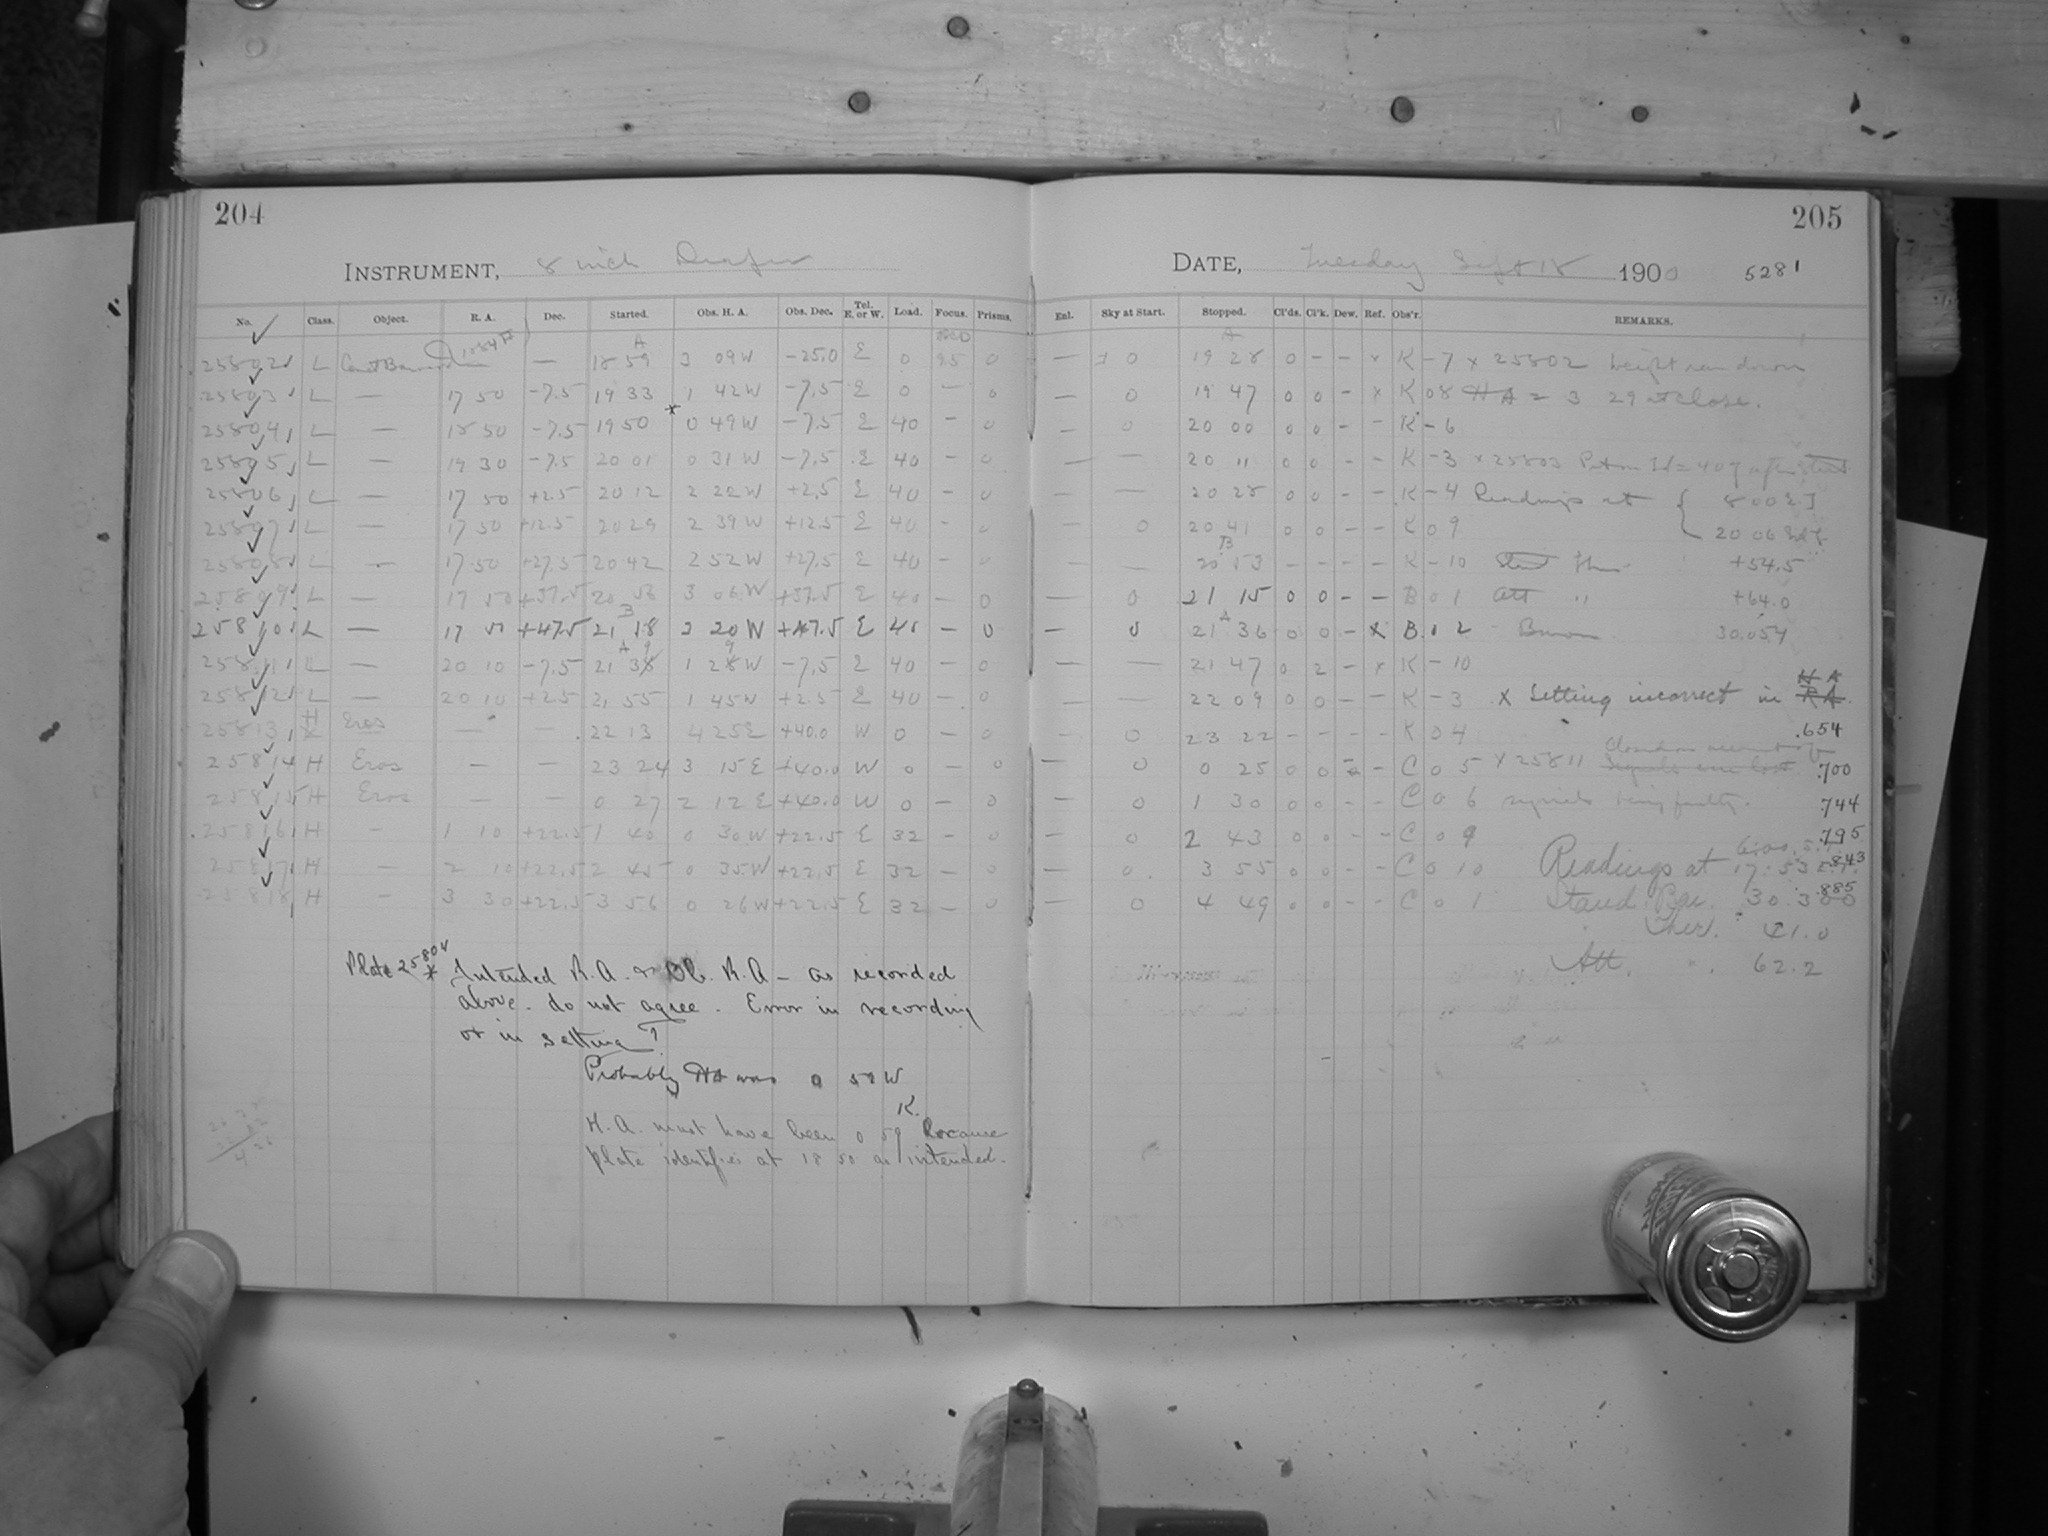 204
INSTRUMENT, 8 inch Draper
No. Class. Object. R. A. Dec. Started. Obs. H. A. Obs. Dec. Tel. E. or W. Load. Focus. Prisms.
25802 L — 18 59 3 09 W -25.0 E 0 0
25803 L — 17 50 -7.5 19 33 1 42 W -7.5 E 0 — 0
25804 L — 18 50 -7.5 19 50 * 0 49 W -7.5 E 40 — 0
25805 L — 19 30 -7.5 20 01 0 31 W -7.5 E 40 — 0
25806 L — 17 50 +2.5 20 12 2 22 W +2.5 E 40 — 0
25807 L — 17 50 +12.5 20 29 2 39 W +12.5 E 40 — 0
25808 L — 17 50 +27.5 20 42 2 52 W +27.5 E 40 — 0
25809 L — 17 50 +37.5 20 56 3 06 W +37.5 E 40 — 0
25810 L — 17 50 +47.5 21 18 3 20 W +47.5 E 40 — 0
25811 L — 20 10 -7.5 21 39 1 29 W -7.5 E 40 — 0
25812 L — 20 10 +2.5 21 55 1 45 W +2.5 E 40 — 0
25813 H Eros — — 22 13 4 25 E +40.0 W 0 — 0
25814 H Eros — — 23 24 3 15 E +40.0 W 0 — 0
25815 H Eros — — 0 27 2 12 E +40.0 W 0 — 0
25816 H — 1 10 +22.5 1 40 0 30 W +22.5 E 32 — 0
25817 H — 2 10 +22.5 2 45 0 35 W +22.5 E 32 — 0
25818 H — 3 30 +22.5 3 56 0 26 W +22.5 E 32 — 0
Plate 25804
* Intended R.A. & Ob. R.A — as recorded
above - do not agree. Error in recording
or in setting?
Probably HA was 0 59 W
K.
H.A. must have been 0 59 because
plate identifies at 18 50 as intended.
205
DATE, Tuesday Sept 18 1900 5281
Enl. Sky at Start. Stopped. Cl'ds. Cl'k. Dew. Ref. Obs'r. REMARKS.
— 0 19 28 0 — — x K - 7 x 25802 weight ran down
— 0 19 47 0 0 — x K 0 8 HA = 3 29 at close.
— 0 20 00 0 0 — — K - 6
— — 20 11 0 0 — — K - 3 x 25803
— — 20 28 0 0 — — K - 4 Readings at
— 0 20 41 0 0 — — K 0 9 20 06
— — 20 53 — — — — K - 10 +54.5
— 0 21 15 0 0 — — B 0 1 Att " +64.0
— 0 21 36 0 0 — x B 0 2 Barom 30.054
— — 21 47 0 2 — x K - 10
— — 22 09 0 0 — — K - 3 x Setting incorrect in H A R A
— 0 23 22 — — — — K 0 4 .654
— 0 0 25 0 0 2 — C 0 5 x 25811 Closed on account of signals .700
— 0 1 30 0 0 — — C 0 6 signals being faulty. .744
— 0 2 43 0 0 — — C 0 9 .795
— 0 3 55 0 0 — — C 0 10 Readings at 17.53 .843
— 0 4 49 0 0 — — C 0 1 Stand Bar. 30.380 .885
Ther. 41.0
Att. " 62.2